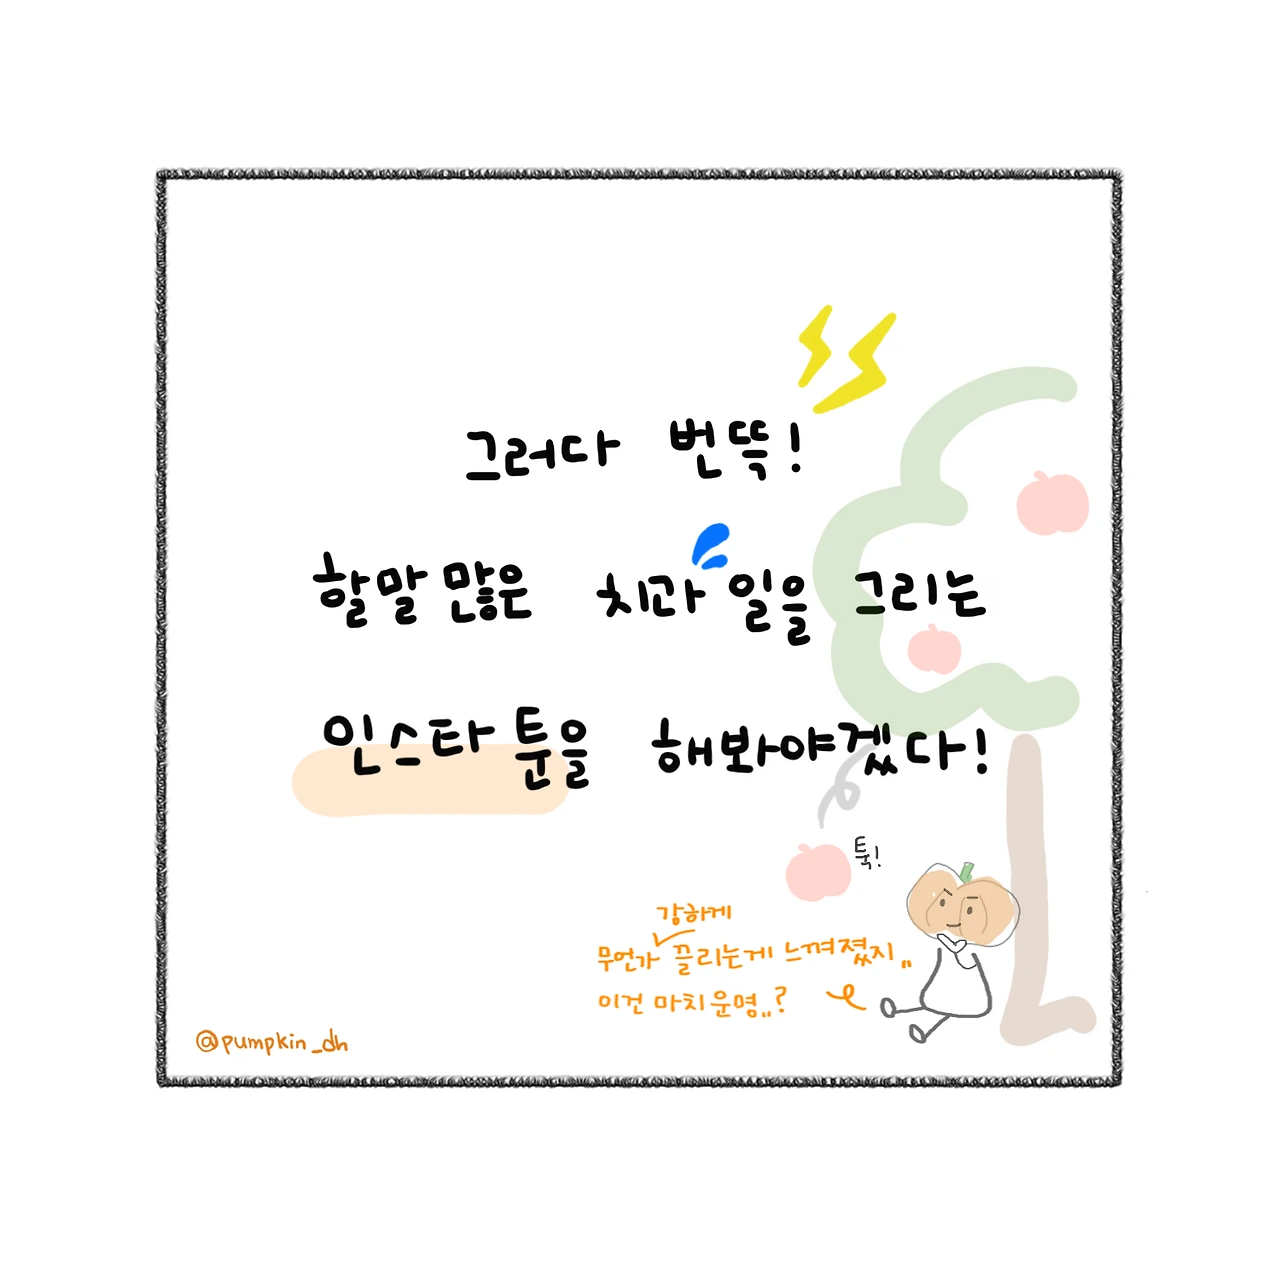 그러다 번뜩!
할말 많은 치과 일을 그리는
인스타 툰을 해봐야겠다!
툭!
감하게
무언가 끌리는게 느껴졌지,,
이건 마치 운명,,?
@pumpkin_dh